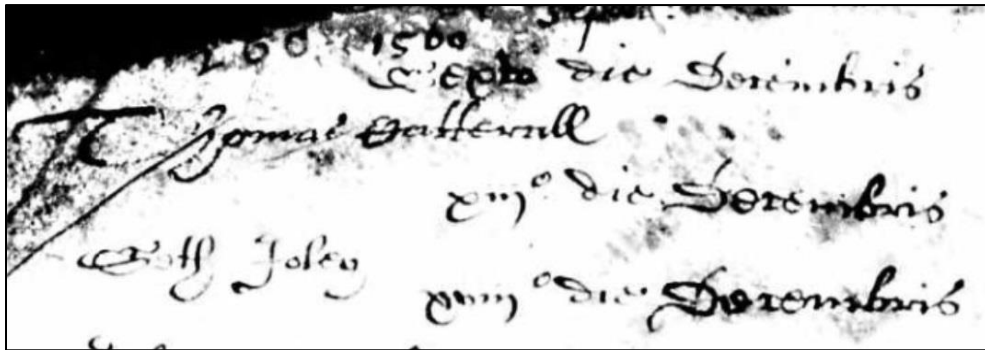 1560
Sexto die Decembris
Thomas Catterall
xiij° die Decembris
Seth Joley
xviij° die Decembris